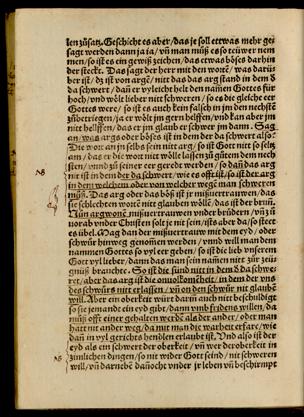 len zůsatz. Geschicht es aber / das je soll ettwas mehr ge
sagt werden dann ja ja / vñ man můß es so teüwer nem
men / so ist es ein gewiß zeichen / das etwas böses darhin
der steckt. Das sagt der herr mit den wortē / was darüs
ber ist / dz ist von argē / nitt das das arg stand in dem d
da schwert / dañ er vyleicht helt den namen Gottes für
hoch / vnd wölt lieber nitt schweren / so es die gleiche eer
Gottes were / so ist es auch kein falsch in jm den nechstē
zůbetriegen / ja er wölt jm gern helffen / vnd kan aber jm
nitt hellffen / das er jm glaub er schwer jm dann. Sag
an / was args oder böses ist in dem der da schwert also?
Die wort an jn selbs sein nitt arg / so ist Gott nit so seltz
an / das er die wort nitt wölt lassen zů gůtem dem nech
sten / vnnd zů seiner eer geredt werden / so dañ das arg
nit ist in dem der da schwert / wie es offt ist / so ist der arg
in dem welchem oder von welcher wegē man schweren
můß. Das arg oder das böß ist mißvertrauwen / das
er schlechten wortē nitt glauben wöllt / das ist der bruñ.
Nun argwonē / mißuertrauwen vnder brüdern / vñ zů
uorab vnder Christen solte nit sein / ists aber da / so steet
es übel. Mag dan der mißvertrauw mit dem eyd / oder
schwůr hinweg genomen werden / vnnd will man dem
nammen Gottes so vyl eer geben / so ist die lieb vnserem
Gott vyl lieber / dann das man sein namen nitt zůr zeüg
nuß brauchte. So ist die sünd nitt in dem d da schwe
ret / aber das arg ist die onuolkomēheit / in dem der vns
des schwůrs nitt erlassen / vñ on den schwůr nit glaubē
will. Aber ein oberkeit würt darin auch nitt beschuldigt
so sie jemande ein eyd gibt / dann vmb fridens willen / da
můß offt einer gehalten werdē als der ander / oder man
hatt nit ander weg / da mit man die warheit erfare / wie
dañ in vyl gerichts hendlen erlaubt ist. Vnd also ist der
eyd als ein schwert der oberkeit / vñ wer den oberkeit in
zimlichen dingen / so nit wider Gott seind / nit schweren
will / vñ darnebē dañocht vnder jr leben vñ beschirmpt